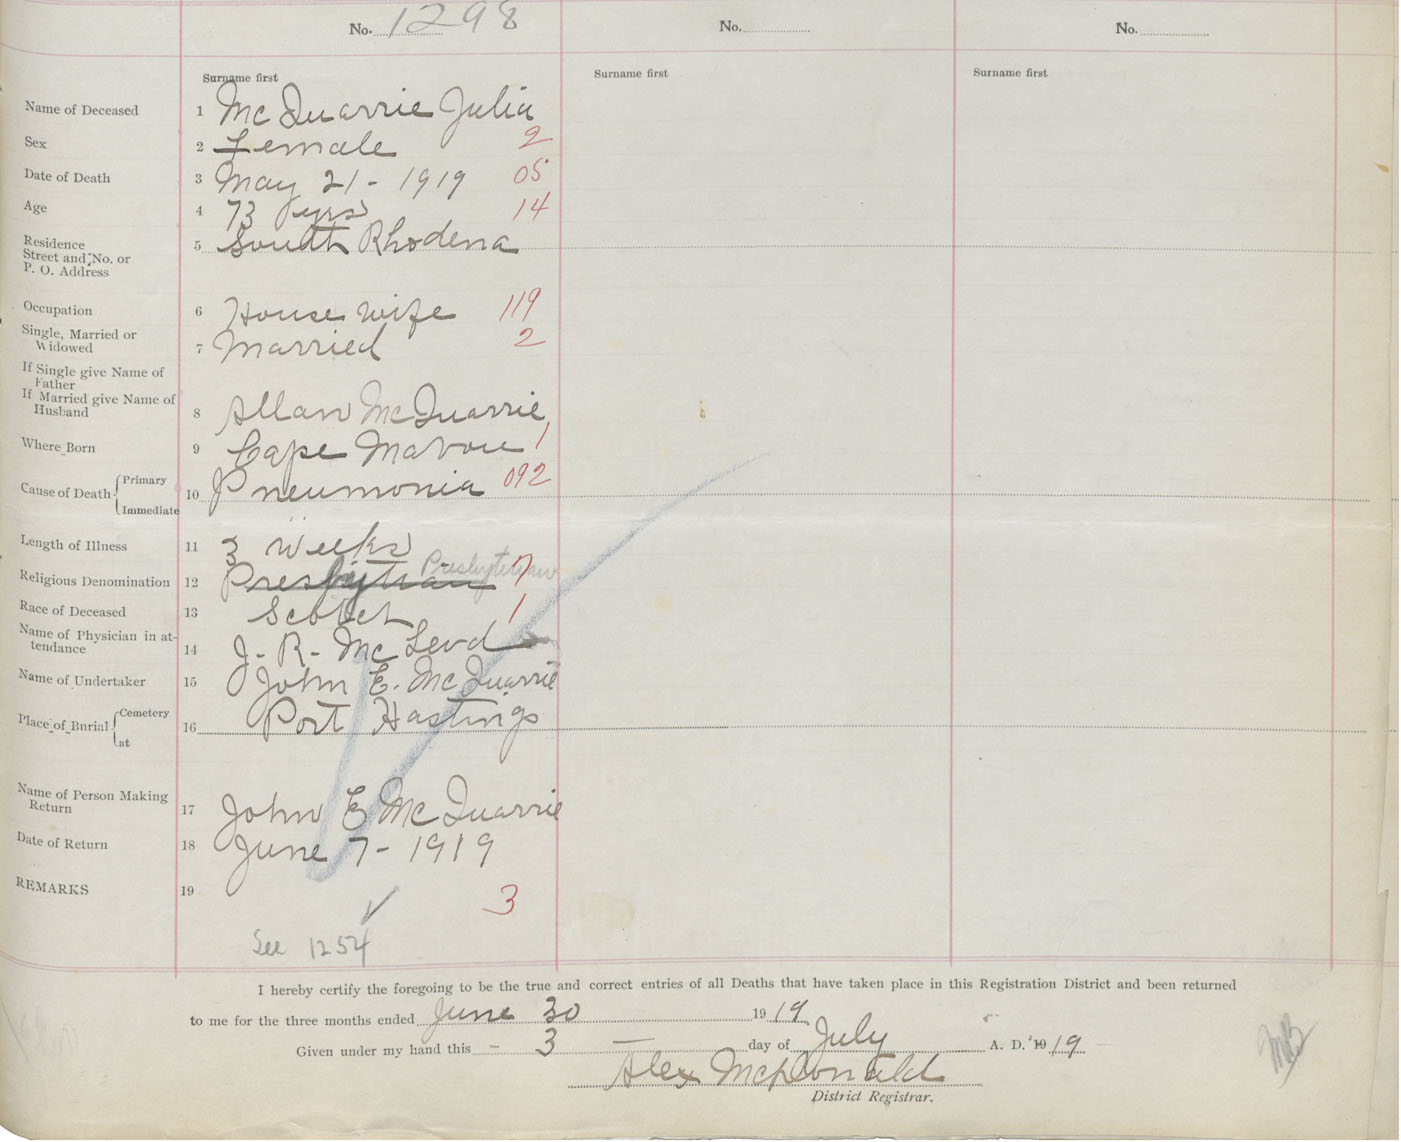 No. 1298 No. No.
Surname first Surname first Surname first
Name of Deceased 1 McQuarrie Julia
Sex 2 Female 2
Date of Death 3 May 21 - 1919 05
Age 4 73 yrs 14
Residence 5 South Rhodena
Street and No. or
P. O. Address
Occupation 6 House wife 119
Single, Married or
Widowed 7 Married 2
If Single give Name of
Father
If Married give Name of
Husband 8 Allan McQuarrie
Where Born 9 Cape Mabou 1
Cause of Death Primary
Immediate 10 Pneumonia 092
Length of Illness 11 3 weeks
Religious Denomination 12 Presbytrian Presbyterian 7
Race of Deceased 13 Scotch 1
Name of Physician in at-
tendance 14 J. R. McLeod
Name of Undertaker 15 John E. McQuarrie
Place of Burial Cemetery
at 16 Port Hastings
Name of Person Making
Return 17 John E McQuarrie
Date of Return 18 June 7 - 1919
REMARKS 19 3
See 1254
I hereby certify the foregoing to be the true and correct entries of all Deaths that have taken place in this Registration District and been returned
to me for the three months ended June 30 1919
Given under my hand this - 3 — day of July A. D. 1919
Alex McDonald
District Registrar.